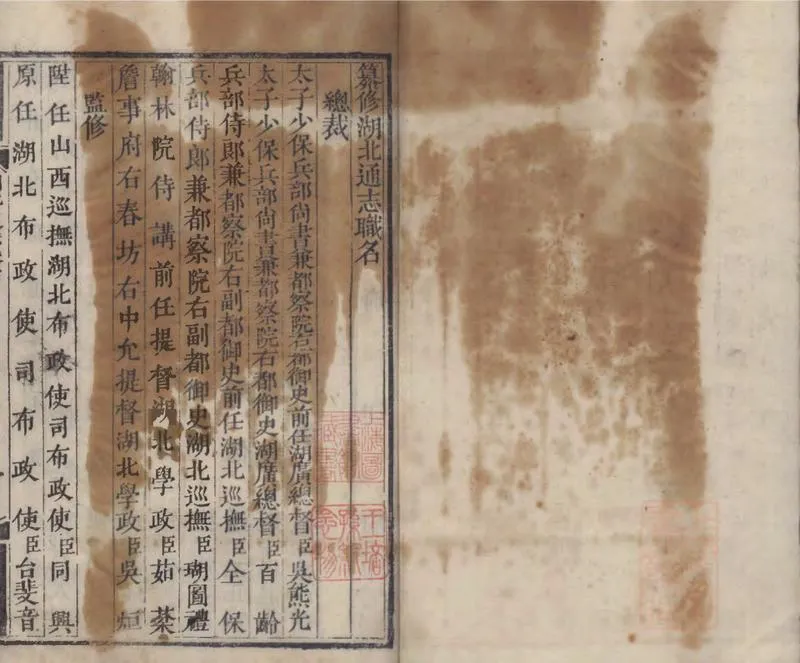 纂修湖北通志職名
總裁
太子少保兵部尚書兼都察院右都御史前任湖廣總督臣吳熊光
太子少保兵部尚書兼都察院右都御史湖廣總督臣百齡
兵部侍郎兼都察院右副都御史前任湖北巡撫臣全保
兵部侍郎兼都察院右副都御史湖北巡撫臣瑚圖禮
翰林院侍講前任提督湖北學政臣茹棻
詹事府右春坊右中允提督湖北學政臣吳烜
監修
陞任山西巡撫湖北布政使司布政使臣同興
原任湖北布政使司布政使臣台斐音
上海圖書館藏書
王培孫紀念物